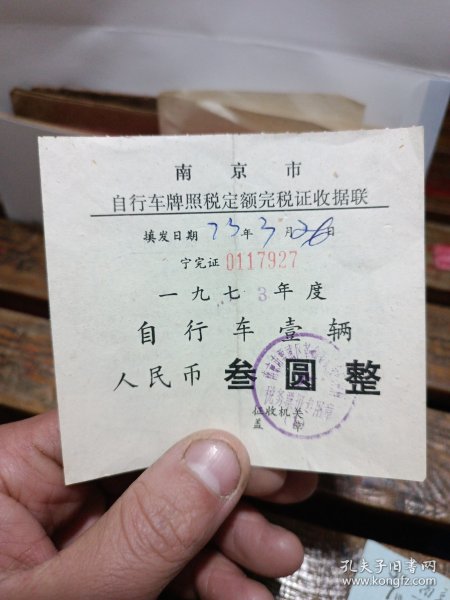 南京市
自行车牌照税定额完税证收据联
填发日期 73年3月26日
宁完证 0117927
一九七3年度
自行车壹辆
人民币 叁圆整
征收机关
盖章
孔夫子旧书网
www.kongfz.com